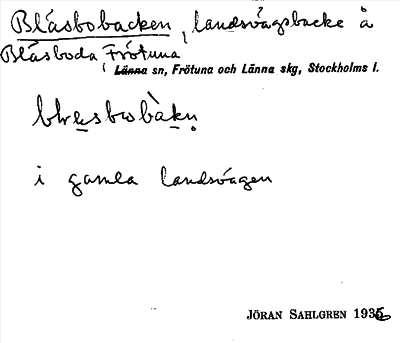 Blåsbobacken, landsvägsbacke å
Blåsboda Frötuna
i Länna sn, Frötuna och Länna skg, Stockholms l.
i gamla landsvägen
JÖRAN SAHLGREN 1935